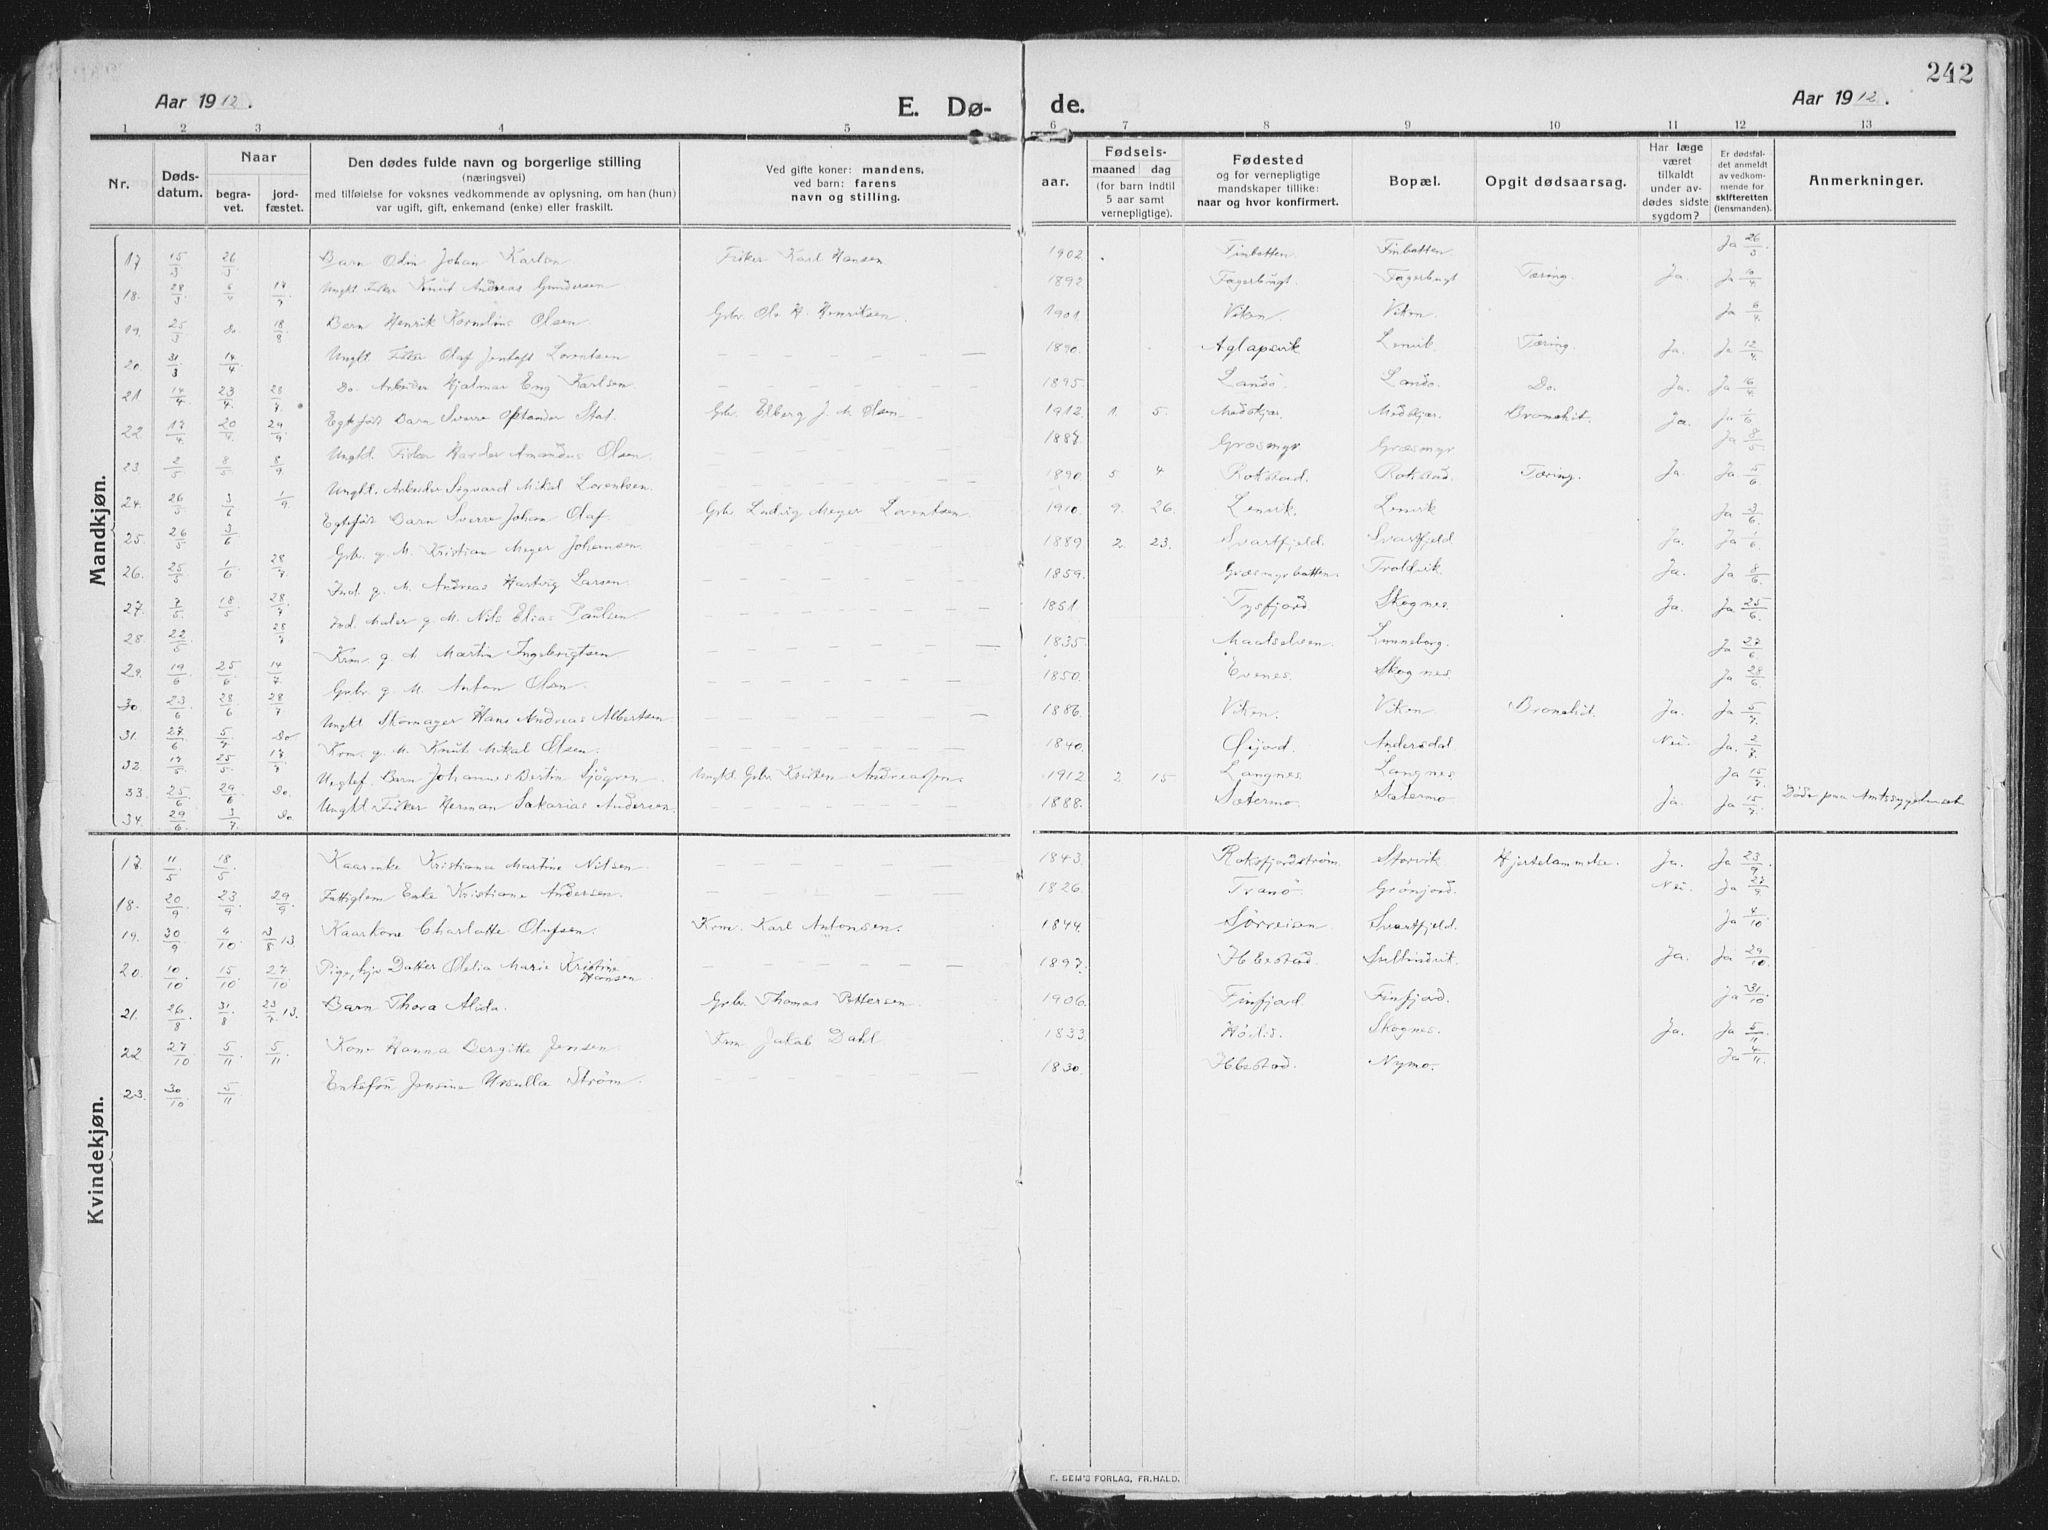 242
Aar 1912.
E. Dø-
de.
Aar 1912.
1 2 3 4 5 6 7 8 9 10 11 12 13
Nr.
Døds-
datum.
Naar
begra-
vet.
jord-
fæstet.
Den dødes fulde navn og borgerlige stilling
(næringsvei)
med tilføielse for voksnes vedkommende av oplysning, om han (hun)
var ugift, gift, enkemand (enke) eller fraskilt.
Ved gifte koner: mandens,
ved barn: farens
navn og stilling.
aar.
Fødsels-
maaned dag
(for barn indtil
5 aar samt
vernepligtige).
Fødested
og for vernepligtige
mandskaper tillike:
naar og hvor konfirmert.
Bopæl.
Opgit dødsaarsag.
Har læge
været
tilkaldt
under av-
dødes sidste
sygdom?
Er dødsfal-
det anmeldt
av vedkom-
mende for
skifteretten
(lensmanden).
Anmerkninger.
Mandkjøn.
17 15/3 26/3 Barn Odin Johan Karlsen Fisker Karl Hansen 1902 Finbotten. Finbotten Ja 26/3
18. 28/3 6/4 14/7 Ungkl. Fisker Knut Andreas Gundersen 1892 Fagerbugt. Fagerbugt Tæring. Ja. Ja 10/4
19. 25/3 Do. 18/8 Barn Henrik Kornelius Olsen. Gbr. Ole H. Henriksen. 1901. Viken. Viken. Ja 6/4
20. 31/3 14/4 Ungkl. Fisker Olaf Jentoft Lorentsen 1890. Aglapsvik. Lenvik Tæring. Ja. Ja 12/4
21 14/4 23/4 28/7 Do. Arbeider Hjalmar Eng Karlsen. 1895. Landö. Landö. Do. Ja. Ja 16/4
22 17/4 20/4 29/9 Egtefødt Barn Sverre Stat. Gbr. Elberg J. M. Olsen 1912 1. 5. Medskjær. Medskjær. Bronchit. Ja. Ja 1/6
23 2/5 8/5 8/9 Ungkl. Fisker Harder Amandus Olsen. 1887. Græsmyr. Græsmyr Ja 8/5
24. 26/5 3/6 1/9 Ungkl. Arbeider Sigvard Mikal Lorentsen. 1890 5. 4 Rokstad. Rokstad. Tæring. Ja. Ja 5/6
25. 26/5 3/6 Egtefødt Barn Sverre Johan Olaf Gbr Ludvig Meyer Lorentsen 1910. 9. 26. Lenvik. Lenvik Ja 3/6
26. 25/5 1/6 28/7 Gbr. g. M. Kristian Meyer Johansen. 1889 2. 23. Svartfjeld. Svartfjeld Ja. Ja 1/6
27. 7/5 18/5 28/7 Ind. g. M. Andreas Hartvig Larsen. 1859. Græsmyrbotten. Troldvik. Ja. Ja 8/6
28. 22/5 28/7 Ind. Maler g. M. Nils Elias Paulsen 1851. Tysfjord Skognes. Ja. Ja 25/6
29. 19/6 25/6 14/7 Krm. g. M. Martin Ingebrigtsen 1835. Maalselven. Lunneborg. Ja 27/6
30. 23/6 28/6 28/7 Gbr. g. M. Anton Olsen. 1850. Evenes. Skognes. Ja 28/6
31. 27/6 5/7 Do Ungkl Skomager Hans Andreas Albertsen. 1886 Viken. Viken Bronchit. Ja. Ja 5/7
32. 17/5 25/5 17/7 Krm. g. M. Knut Mikal Olsen. 1840. Öxjord. Andersdal Nei. Ja. 2/7
33. 25/6 29/6 Do. Ungtef. Barn Johannes Bertin Sjögren. Ungkl. Gbr. Kristen Andreassen. 1912 2. 15. Langnes. Langnes Ja 15/7
34. 29/6 3/7 Do Ungkl. Fisker Herman Sakarias Andersen 1888. Sætermo. Sætermo Ja. Ja 15/7. Döde paa Amtssygehuset
Kvindekjøn.
17 11/5 18/5 Kaarenke Kristiana Martine Nilsen. 1843. Roksfjordström. Storvik Hjertelammelse. Ja. Ja 23/9
18. 20/9 23/9 29/9 Fattiglem Enke Kristiane Andersen. 1826. Tranö. Grönjord. Nei. Ja 27/9
19. 30/9 4/10 3/8 13 Kaarkone Charlotte Olufsen. Krm. Karl Antonsen. 1844. Sörreisen Svartfjeld. Ja 4/10
20. 10/10 15/10 27/10 Pige, hjv Datter Olelia Marie Kristine Hansen. 1897. Ibestad. Sultindvik. Ja. Ja 29/10
21. 26/8 31/8 23/7 13. Barn Thora Alida. Gbr. Thomas Pettersen. 1906. Finfjord. Finfjord. Ja 31/10
22 27/10 5/11 5/11 Kone Hanna Bergitte Jensen. Frm Jakob Dahl 1833. Höilid. Skognes. Ja. Ja 5/11
23. 30/10 5/11 Jensine Ursulla Ström. 1830. Ibbestad. Nymo. Ja 4/11
E. SEM'S FORLAG, FR.HALD.